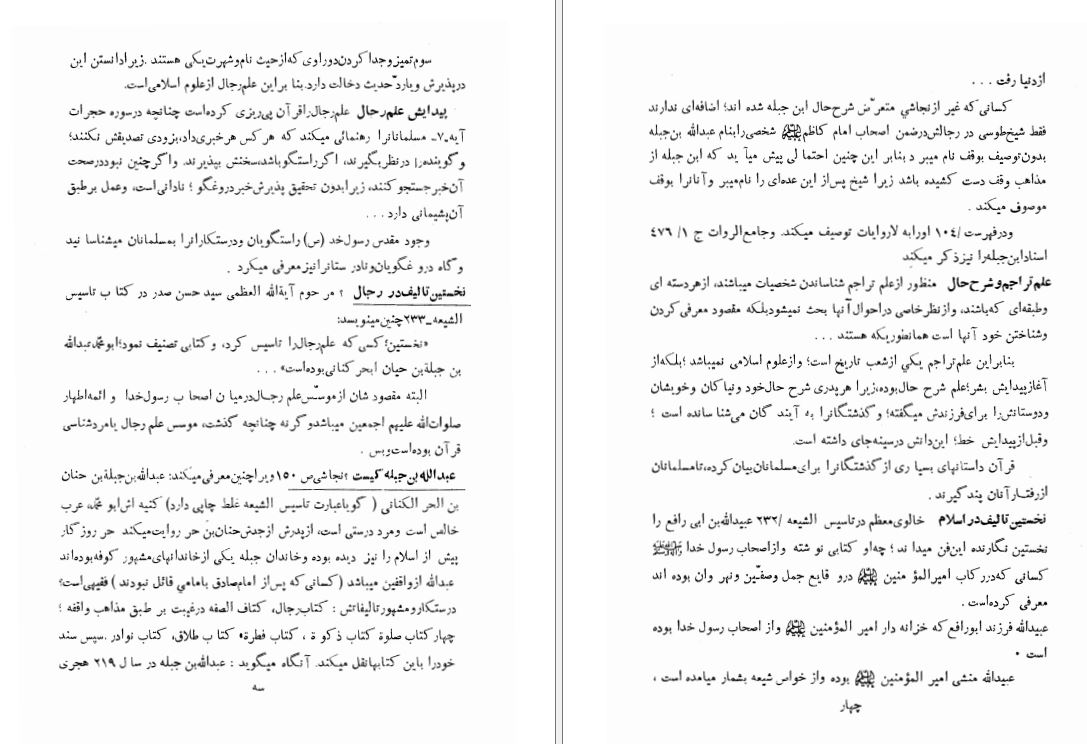 سوم تمیز و جدا کردن دو راوی که از حیث نام و شهرت یکی هستند . زیرا دانستن این
در پذیرش و یا ردّ حدیث دخالت دارد. بنا بر این علم رجال از علوم اسلامی است.
پیدایش علم رجال علم رجال را قرآن پی ریزی کرده است چنانچه در سوره حجرات
آیه ـ۷ـ مسلمانان را رهنمائی میکند که هر کس هر خبری داد، بزودی تصدیقش نکنند؛
و گوینده را در نظر بگیرند، اگر راستگو باشد، سخنش بپذیرند. و اگر چنین نبود در صحت
آن خبر جستجو کنند، زیرا بدون تحقیق پذیرش خبر دروغگو ؛ نادانی است، و عمل بر طبق
آن پشیمانی دارد . . .
وجود مقدس رسول خد (ص) راستگویان و درستکاران را بمسلمانان میشناسا نید
و گاه درو غگویان و نادر ستان را نیز معرفی میکرد .
نخستین تالیف در رجال ؟ مر حوم آیة الله العظمی سید حسن صدر در کتا ب تاسیس
الشیعه ـ۲۳۳ چنین مینویسد:
«نخستین؛ کسی که علم رجال را تاسیس کرد، و کتابی تصنیف نمود؛ ابو محمّد عبدالله
بن جبلة بن حیان ابحر کنانی بوده است» . . .
البته مقصود شان از موسّس علم رجال در میا ن اصحا ب رسول خدا و ائمه اطهار
صلوات الله علیهم اجمعین میباشد و گر نه چنانچه گذشت، موسس علم رجال یا مرد شناسی
قر آن بوده است و بس .
عبدالله بن جبله کیست ؟ نجاشی ص ۱۵۰ ویرا چنین معرفی میکند: عبدالله بن جبلة بن حنان
بن الحر الکنانی ( گویا عبارت تاسیس الشیعه غلط چاپی دارد) کنیه اش ابو محمّد، عرب
خالص است و مرد درستی است، از پدرش از جدش حنان بن حر روایت میکند حر روز گار
پیش از اسلام را نیز دیده بوده و خاندان جبله یکی از خاندانهای مشهور کوفه بوده اند
عبدالله از واقفین میباشد ( کسانی که پس از امام صادق بامامی قائل نبودند ) فقیهی است؟
درستکار و مشهور تالیفاتش : کتاب رجال، کتاف الصفه در غیبت بر طبق مذاهب واقفه ؛
چهار کتاب صلوة کتاب ذکو ة ، کتاب فطرة، کتا ب طلاق، کتاب نوادر . سپس سند
خود را باین کتابها نقل میکند. آنگاه میگوید : عبدالله بن جبله در سا ل ۲۱۹ هجری
سه
از دنیا رفت . . .
کسانی که غیر از نجاشی متعرّض شرح حال ابن جبله شده اند؛ اضافه ای ندارند
فقط شیخ طوسی در رجالش در ضمن اصحاب امام کاظم علیه السلام شخصی را بنام عبدالله بن جبله
بدون توصیف بوقف نام میبر د بنابر این چنین احتما لی پیش میآ ید که ابن جبله از
مذاهب وقف دست کشیده باشد زیرا شیخ پس از این عده ای را نام میبر و آنان را بوقف
موصوف میکند .
و در فهرست / ۱۰۴ او را به لاروایات توصیف میکند. و جامع الروات ج ۱/ ۴۷۶
اسناد ابن جبله را نیز ذکر میکند
علم تراجم و شرح حال منظور از علم تراجم شناساندن شخصیات میباشند، از هر دسته ای
و طبقه ای که باشند، و از نظر خاصی در احوال آنها بحث نمیشود بلکه مقصود معرفی کردن
و شناختن خود آنها است همانطوریکه هستند . . .
بنابر این علم تراجم یکی از شعب تاریخ است؛ و از علوم اسلامی نمیباشد ؛ بلکه از
آغاز پیدایش بشر؛ علم شرح حال بوده، زیرا هر پدری شرح حال خود و نیاکان و خویشان
و دوستانش را برای فرزندش میگفته؛ و گذشتگان را به آیند گان می شنا سانده است ؛
و قبل از پیدایش خط؛ این دانش در سینه جای داشته است.
قر آن داستانهای بسیا ری از گذشتگان را برای مسلمانان بیان کرده، تا مسلمانان
از رفتار آنان پند گیرند .
نخستین تالیف در اسلام خالوی معظم در تاسیس الشیعه /۲۳۲ عبیدالله بن ابی رافع را
نخستین نگارنده این فن میدا ند ؛ چه او کتابی نو شته و از اصحاب رسول خدا صلی الله علیه و آله
کسانی که در رکاب امیر المؤ منین علیه السلام در و قایع جمل و صفّین و نهر وان بوده اند
معرفی کرده است .
عبیدالله فرزند ابو رافع که خزانه دار امیر المؤمنین علیه السلام و از اصحاب رسول خدا بوده
است .
عبیدالله منشی امیر المؤمنین علیه السلام بوده و از خواص شیعه بشمار میامده است ،
چهار